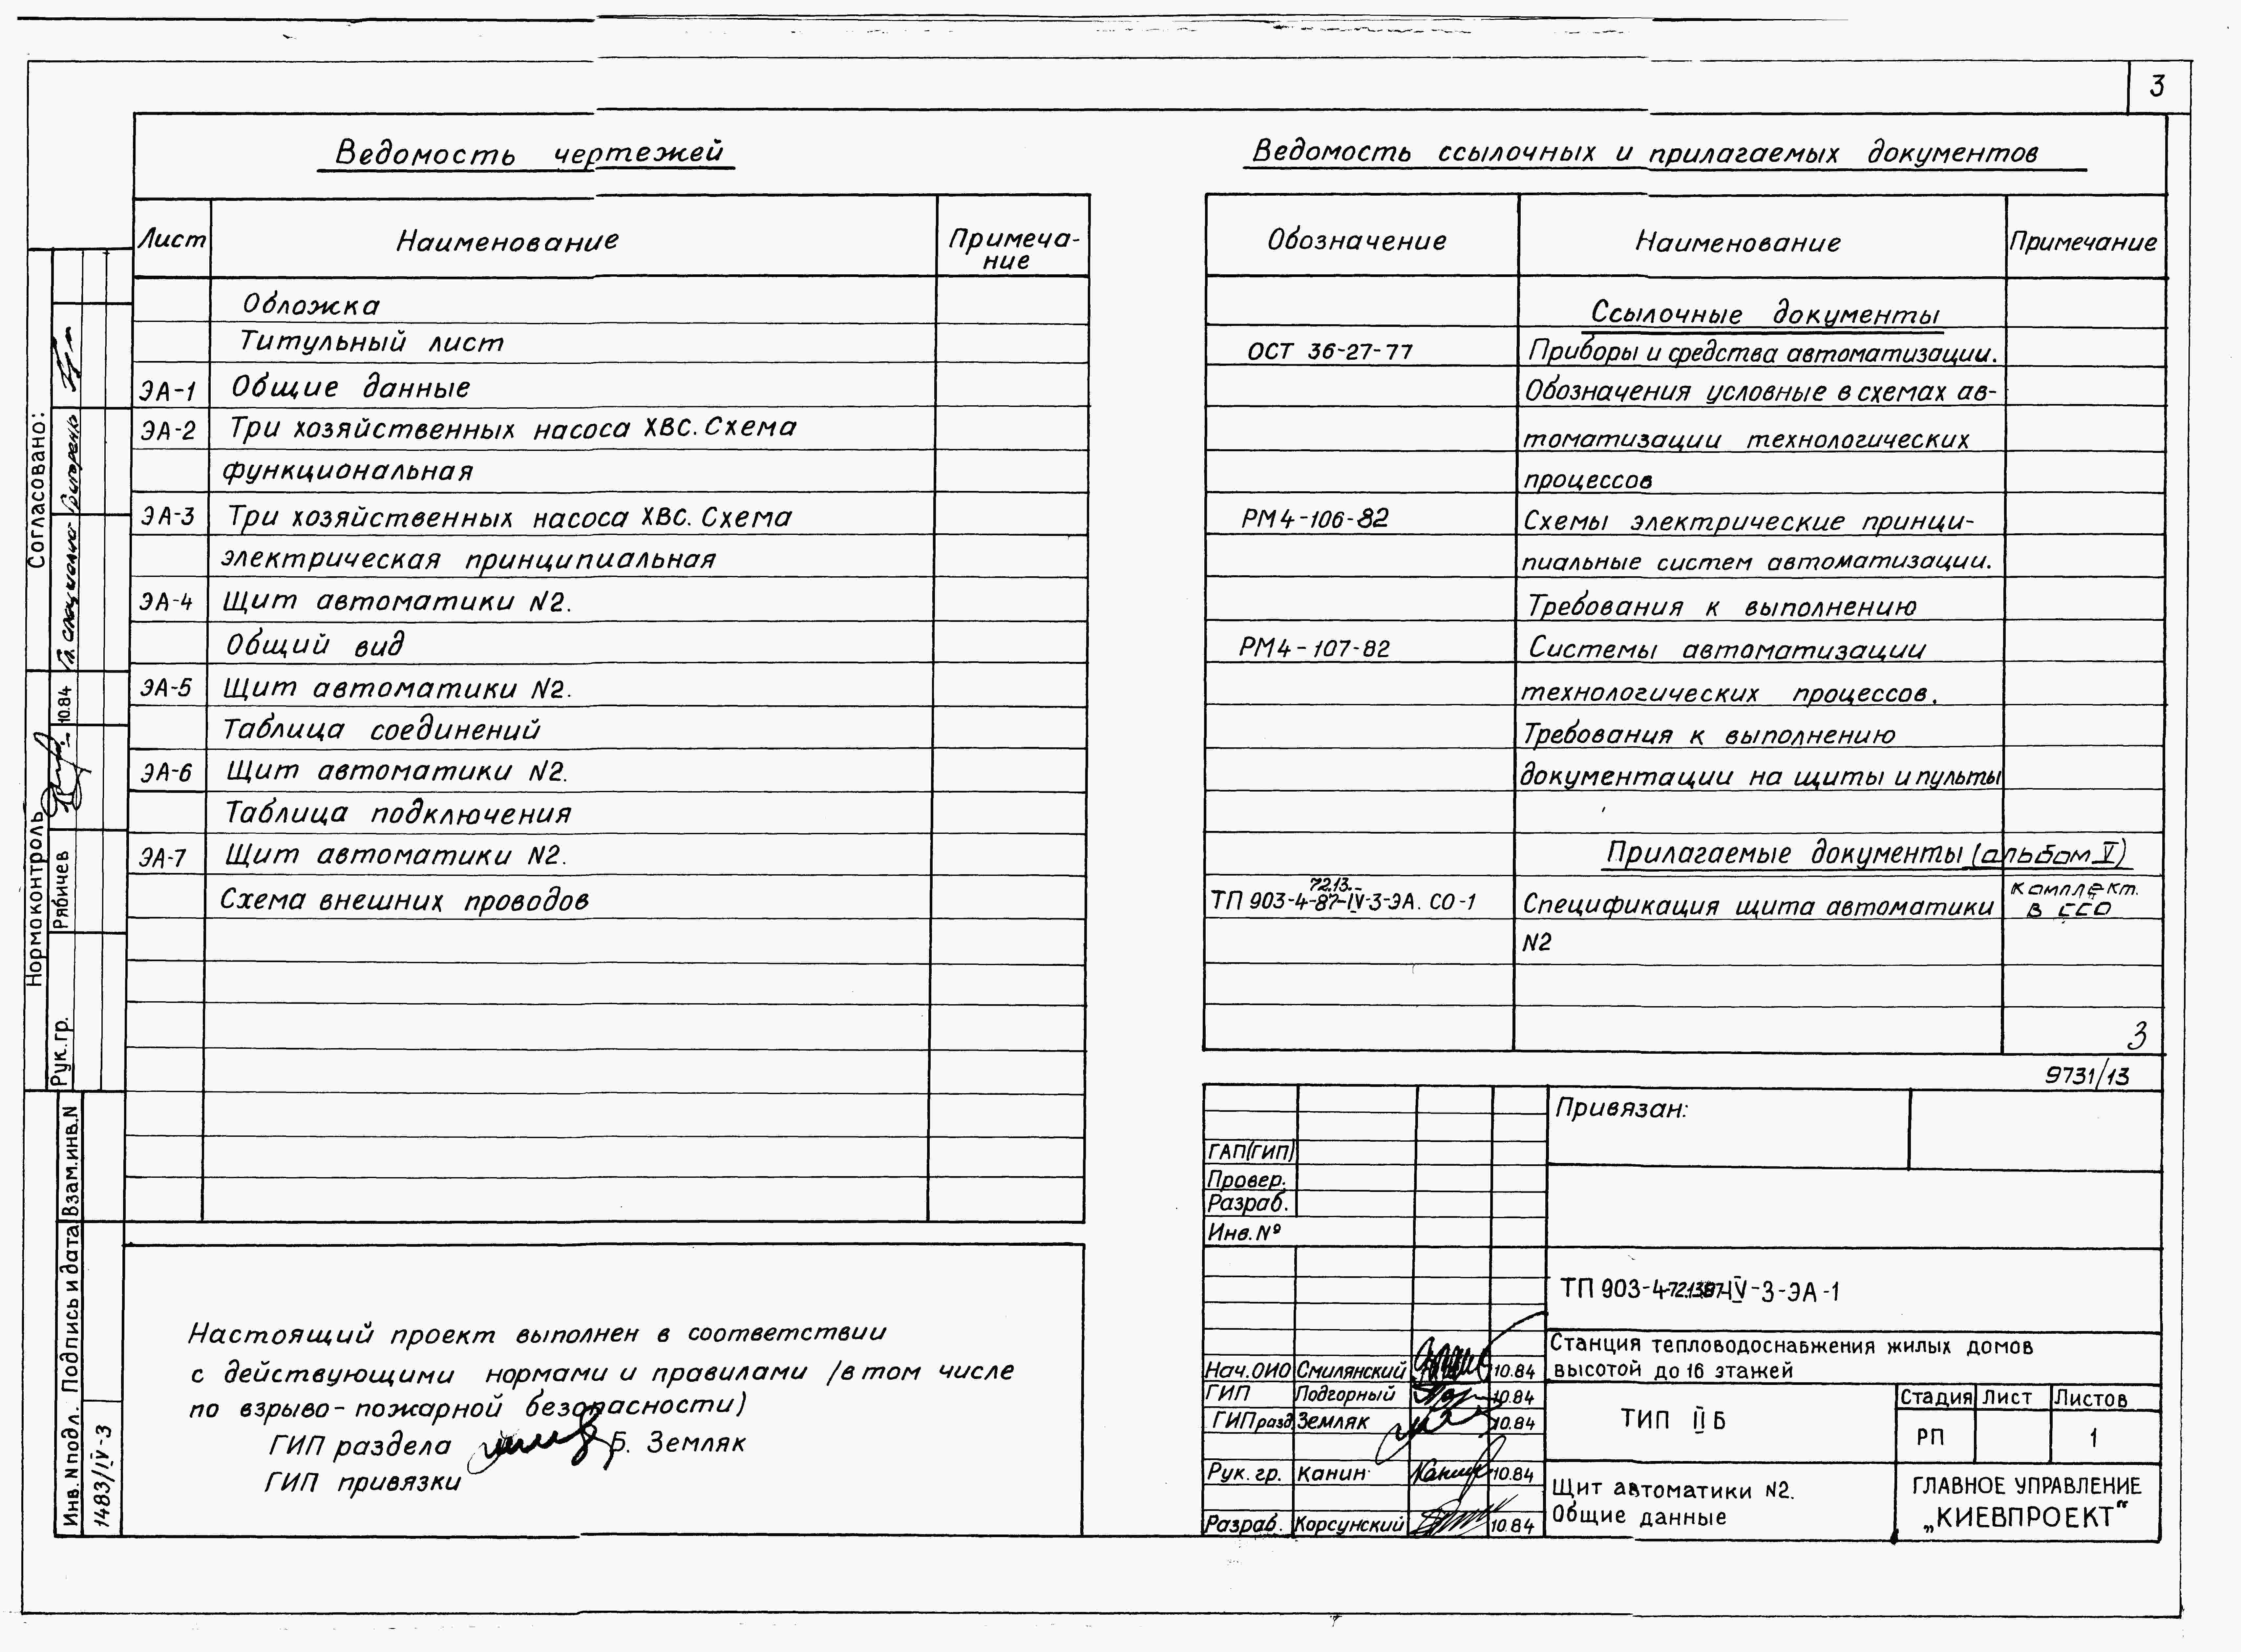 3
Ведомость чертежей
Лист Наименование Примеча-
ние
Обложка
Титульный лист
ЭА-1 Общие данные
ЭА-2 Три хозяйственных насоса ХВС. Схема
функциональная
ЭА-3 Три хозяйственных насоса ХВС. Схема
электрическая принципиальная
ЭА-4 Щит автоматики N2.
Общий вид
ЭА-5 Щит автоматики N2.
Таблица соединений
ЭА-6 Щит автоматики N2.
Таблица подключения
ЭА-7 Щит автоматики N2.
Схема внешних проводов
Настоящий проект выполнен в соответствии
с действующими нормами и правилами /в том числе
по взрыво-пожарной безопасности)
ГИП раздела Б. Земляк
ГИП привязки
Ведомость ссылочных и прилагаемых документов
Обозначение Наименование Примечание
Ссылочные документы
ОСТ 36-27-77 Приборы и средства автоматизации.
Обозначения условные в схемах ав-
томатизации технологических
процессов
РМ4-106-82 Схемы электрические принци-
пиальные систем автоматизации.
Требования к выполнению
РМ4-107-82 Системы автоматизации
технологических процессов.
Требования к выполнению
документации на щиты и пульты
Прилагаемые документы (альбом V)
72.13.-
ТП 903-4-87-IV-3-ЭА. СО-1 Спецификация щита автоматики комплект.
в ССО
N2
3
9731/13
Привязан:
ГАП(ГИП)
Провер.
Разраб.
Инв. №
ТП 903-4- IV-3-ЭА-1
Станция тепловодоснабжения жилых домов
высотой до 16 этажей
Нач. ОИО Смилянский 10.84
ГИП Подгорный 10.84
ГИП разд. Земляк 10.84
Рук. гр. Канин 10.84
Разраб. Корсунский 10.84
ТИП II Б
Стадия Лист Листов
РП 1
Щит автоматики N2.
Общие данные
ГЛАВНОЕ УПРАВЛЕНИЕ
„КИЕВПРОЕКТ“
Согласовано:
Нормоконтроль
Рук. гр. Рябичев 10.84
Взам. инв. N
Подпись и дата
Инв. N подл. 1483/IV-3